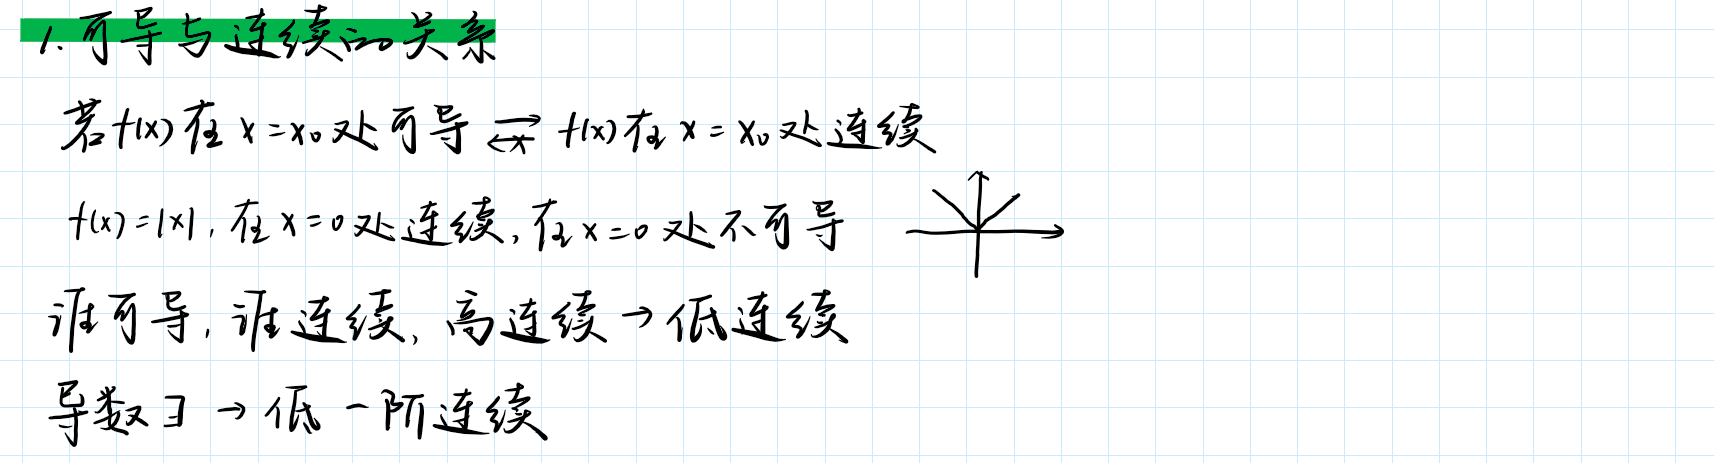 1.可导与连续的关系
若f(x)在x=x₀处可导⇄f(x)在x=x₀处连续
f(x)=|x|,在x=0处连续,在x=0处不可导
谁可导,谁连续,高连续→低连续
导数∃→低一阶连续